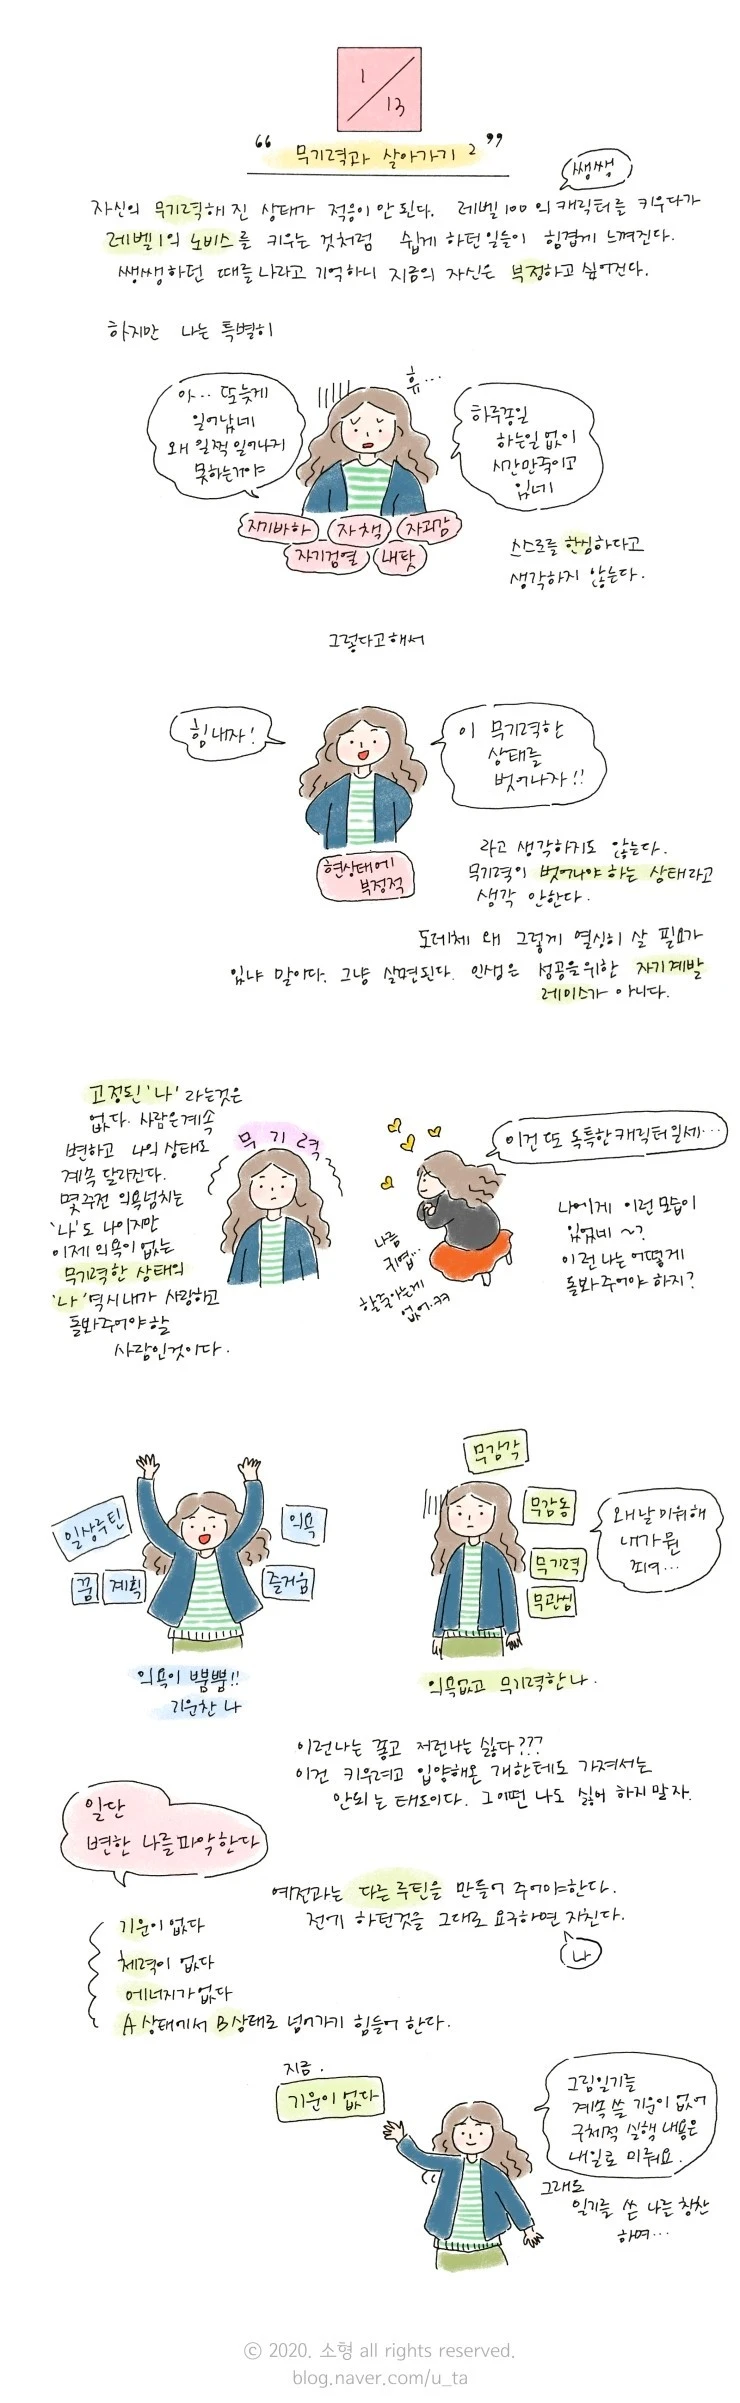 1
13
"무기력과 살아가기 2"
쌩쌩
자신의 무기력해 진 상태가 적응이 안 된다. 레벨 100 의 캐릭터를 키우다가
레벨 1의 노비스를 키우는 것처럼 쉽게 하던 일들이 힘겹게 느껴진다.
쌩쌩하던 때를 나라고 기억하니 지금의 자신은 부정하고 싶어진다.
하지만 나는 특별히
아.. 또 늦게
일어났네
왜 일찍 일어나지
못하는거야
휴...
하루종일
하는일 없이
시간만죽이고
있네
자기비하
자책
자괴감
자기검열
내탓
스스로를 한심하다고
생각하지 않는다.
그렇다고해서
힘내자!
이 무기력한
상태를
벗어나자!!
현상태에
부정적
라고 생각하지도 않는다.
무기력이 벗어나야 하는 상태라고
생각 안한다.
도데체 왜 그렇게 열심히 살 필요가
있냐 말이다. 그냥 살면된다. 인생은 성공을 위한 자기계발
레이스가 아니다.
고정된 '나' 라는것은
없다. 사람은 계속
변하고 나의 상태도
계속 달라진다.
몇주전 의욕넘치는
'나'도 나이지만
이제 의욕이 없는
무기력한 상태의
'나' 역시 내가 사랑하고
돌봐주어야 할
사람인것이다.
무기력
이건 또 독특한 캐릭터일세...
나름
귀엽...
할줄아는게
없어.ㅋㅋ
나에게 이런 모습이
있었네 ~?
이런 나는 어떻게
돌봐 주어야 하지?
일상루틴
의욕
꿈
계획
즐거움
의욕이 뿜뿜!!
기운찬 나
무감각
무감동
무기력
무관심
왜 날 미워해
내가 뭔
죄여...
의욕없고 무기력한 나.
이런나는 좋고 저런나는 싫다???
이건 키우려고 입양해온 개한테도 가져서는
안되는 태도이다. 그 어떤 나도 싫어 하지 말자.
일단
변한 나를 파악한다
예전과는 다른 루틴을 만들어 주어야한다.
전에 하던것을 그대로 요구하면 지친다.
나
기운이 없다
체력이 없다
에너지가 없다
A 상태에서 B 상태로 넘어가기 힘들어 한다.
지금.
기운이 없다
그림일기를
계속 쓸 기운이 없어
구체적 실행 내용은
내일로 미뤄요.
그래도
일기를 쓴 나를 칭찬
하며...
© 2020. 소형 all rights reserved.
blog.naver.com/u_ta